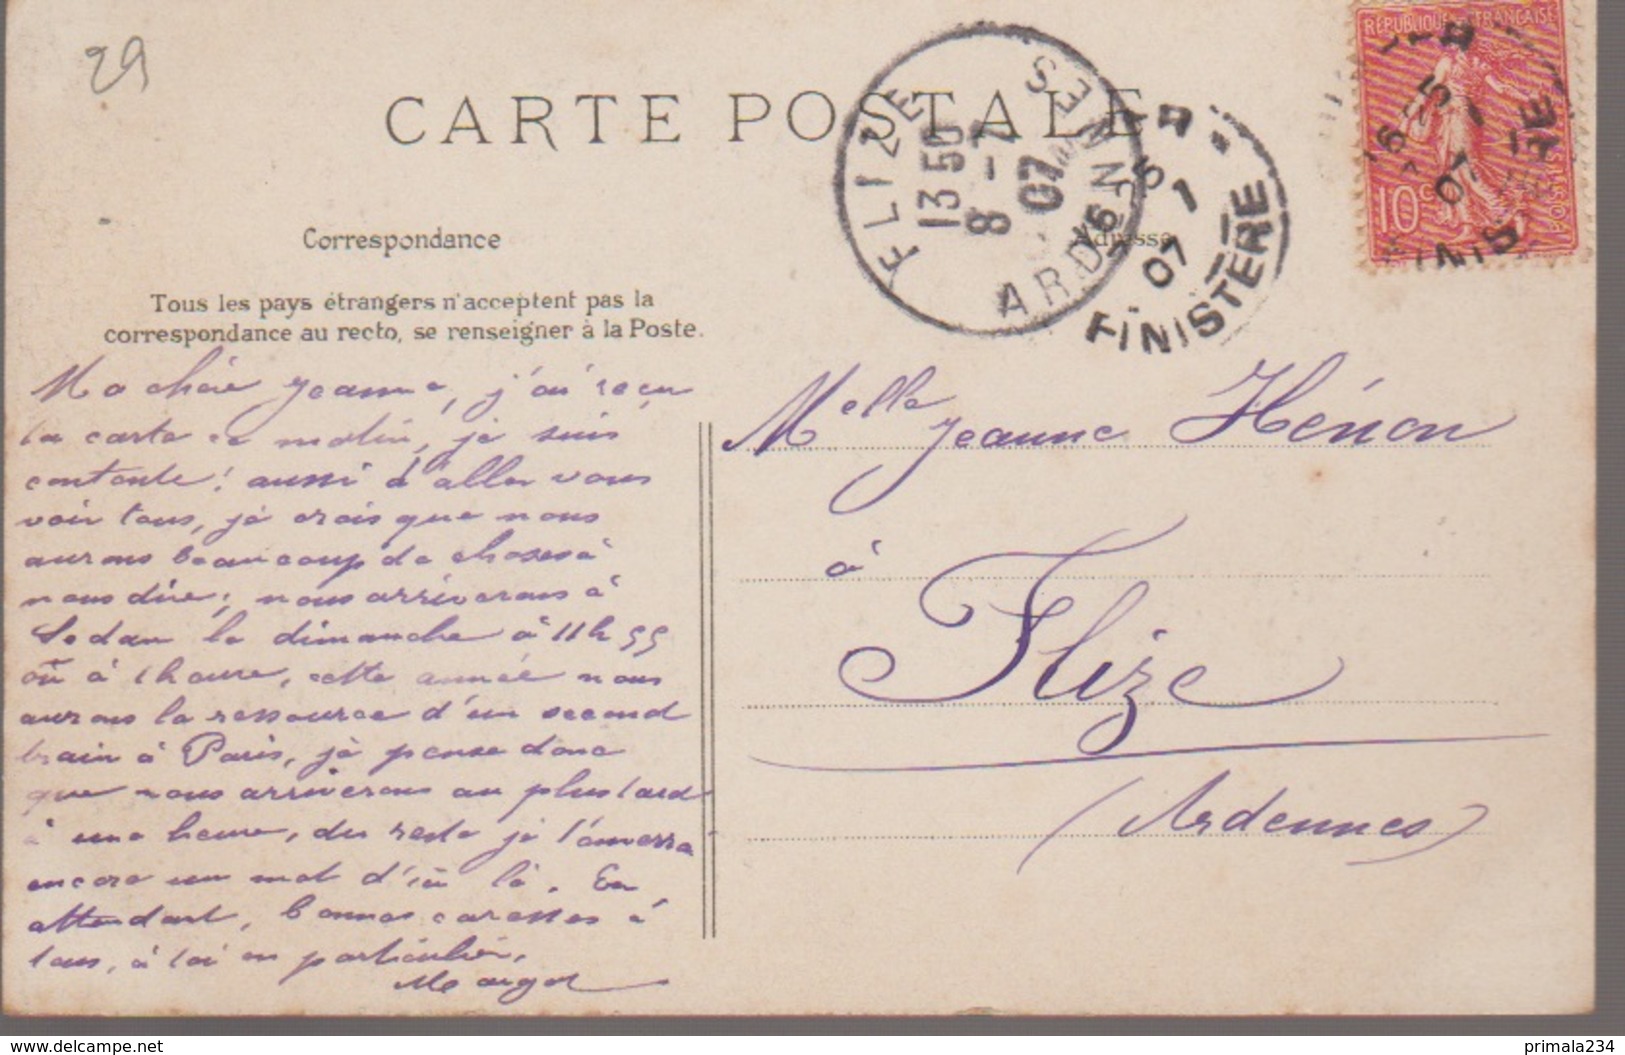 29
CARTE POSTALE
RÉPUBLIQUE FRANÇAISE
10c
POSTES
FLIZE
ARDENNES
13 50
8 - 7
07
FINISTÈRE
07
Correspondance
Adresse
Tous les pays étrangers n'acceptent pas la
correspondance au recto, se renseigner à la Poste.
Ma chère Jeanne, j'ai reçu
ta carte ce matin, je suis
contente! aussi d'aller vous
voir tous, je crois que nous
aurons beaucoup de choses à
nous dire; nous arriverons à
Sedan le dimanche à 11h 55
où à 1 heure, cette année nous
aurons la ressource d'un second
train à Paris, je pense donc
que nous arriverons au plus tard
à une heure, du reste je t'enverra
encore un mot d'ici là. En
attendant, bonnes caresses à
tous, à toi en particulier,
Margot
Melle Jeanne Hénon
à
Flize
(Ardennes)
www.delcampe.net
primala234